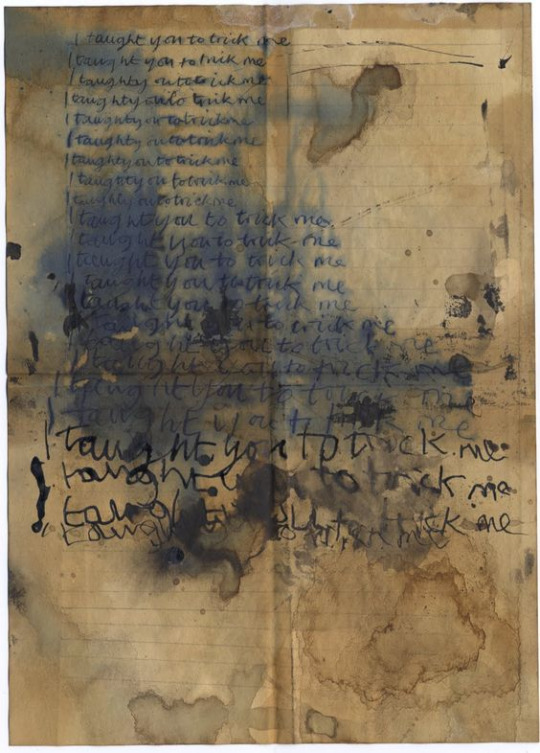 I taught you to trick me
I taught you to trick me
I taught you to trick me
I taught you to trick me
I taught you to trick me
I taught you to trick me
I taught you to trick me
I taught you to trick me
I taught you to trick me
I taught you to trick me
I taught you to trick me
I taught you to trick me
I taught you to trick me
taught you to trick me
taught to trick me
taught you to trick me
taught you to trick me
I taught you to trick me
I taught you trick me
I taught you to trick me
I taught to trick me
taught trick me
taught